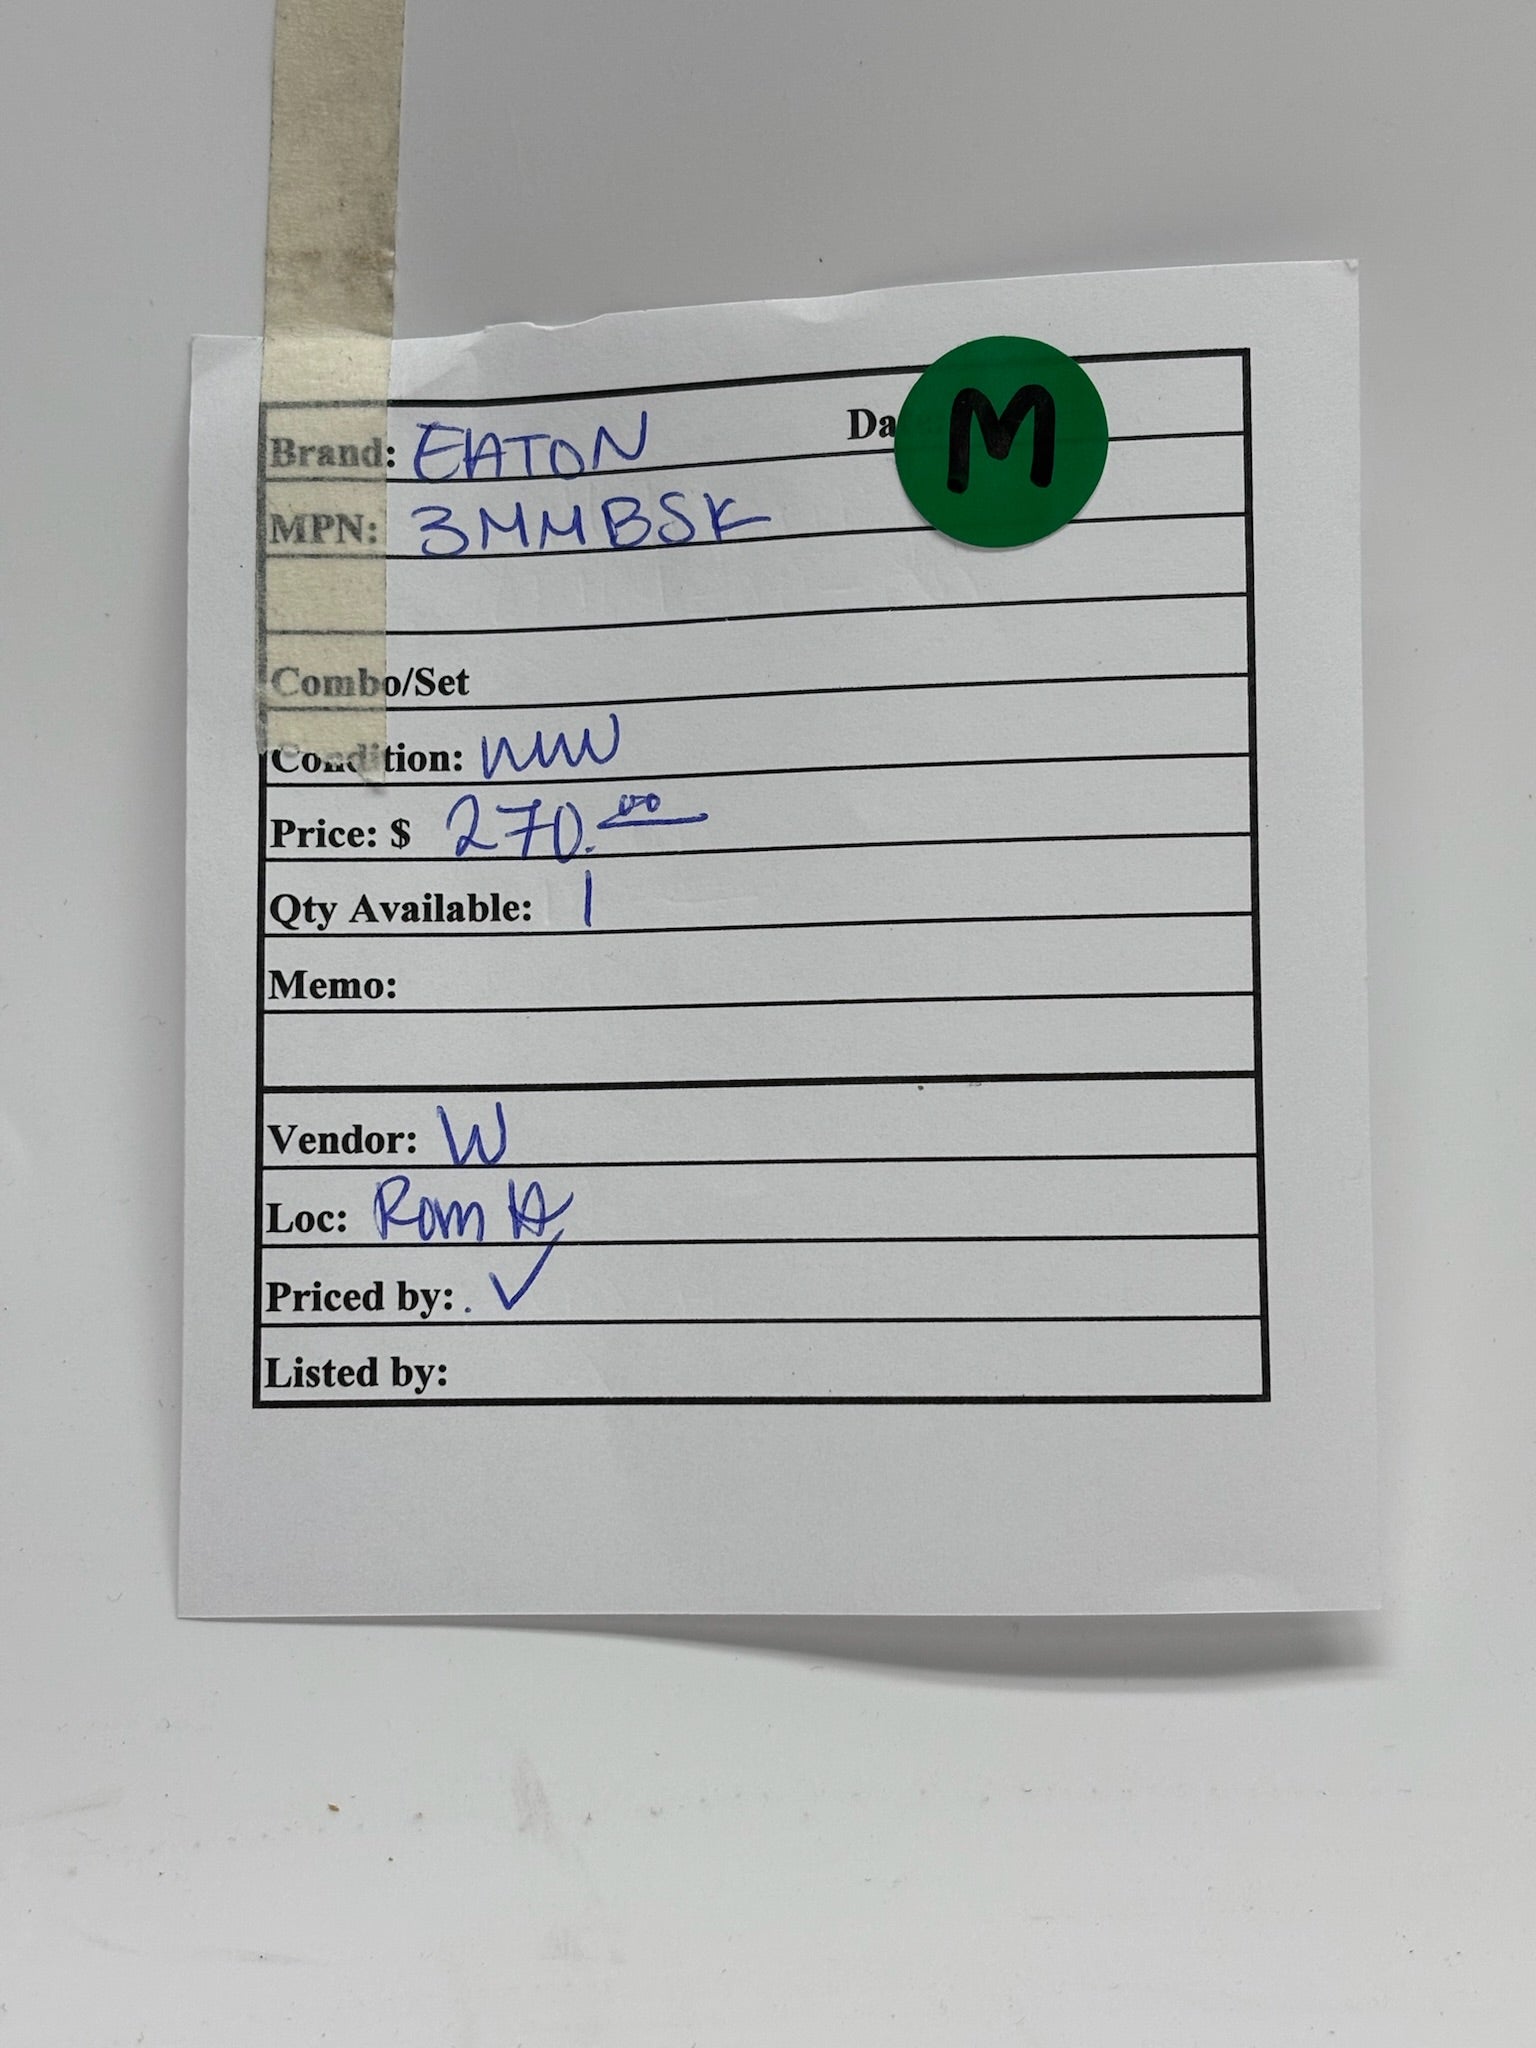 Brand: EATON Da M
MPN: 3MMBSK
Combo/Set
Condition: NUW
Price: $ 270.00
Qty Available: 1
Memo:
Vendor: W
Loc: Rom A
Priced by: ✓
Listed by: